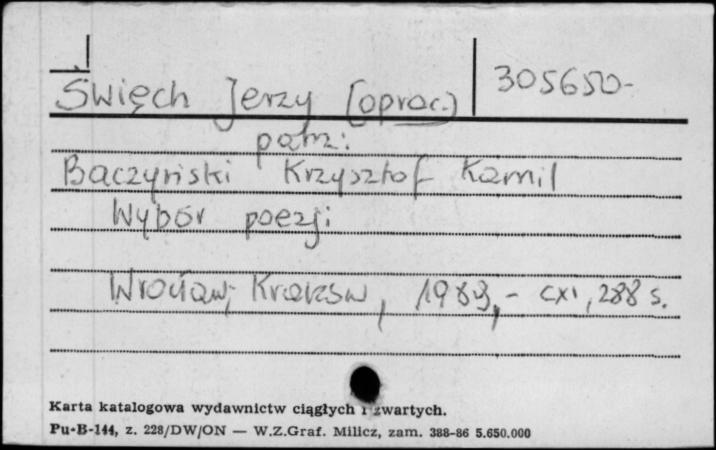 Święch Jerzy (oprac.) 305650-
patrz:
Baczyński Krzysztof Kamil
Wybór poezji
Wrocław, Kraków, 1989,- CXI, 288 s.
Karta katalogowa wydawnictw ciągłych i zwartych.
Pu-B-144, z. 228/DW/ON — W.Z.Graf. Milicz, zam. 388-86 5.650.000